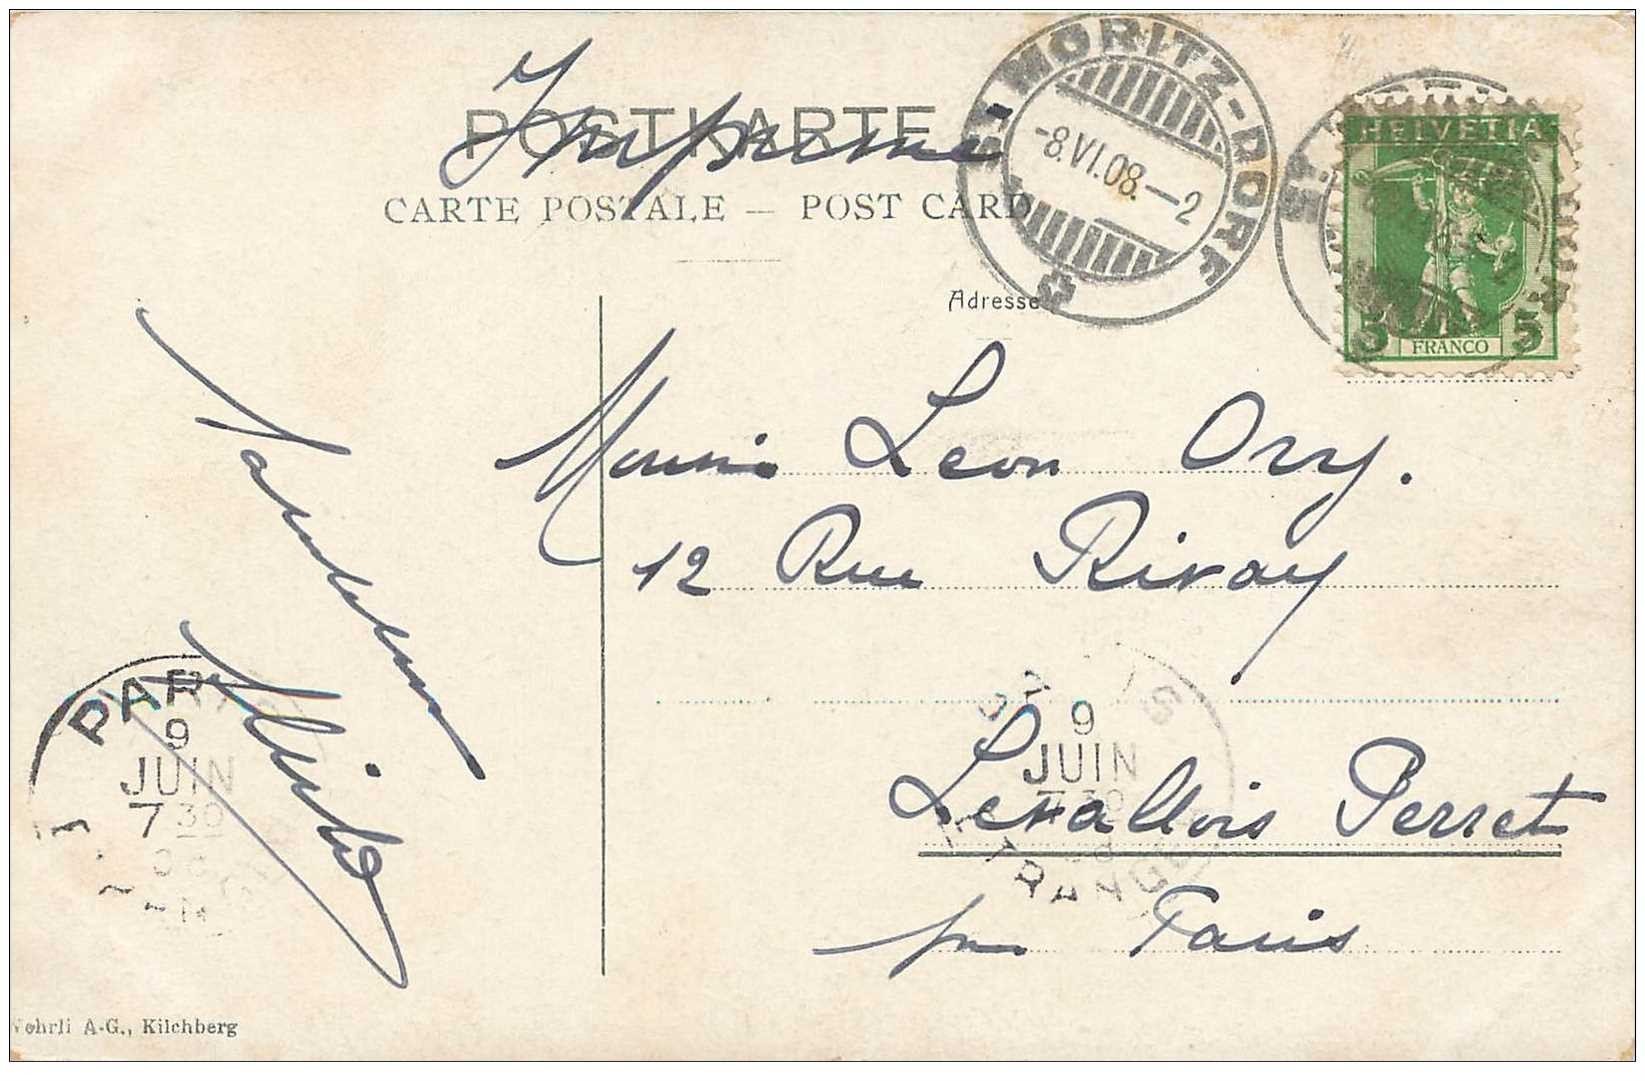 POSTKARTE
CARTE POSTALE — POST CARD
ST. MORITZ-DORF
-8.VI.08.—2
HELVETIA
5 FRANCO 5
Adresse
Leon Ory.
12 Rue Rivay
Levallois Perret
Paris
PARIS
9
JUIN
7 30
08
ETRANGER
PAR
9
JUIN
7 30
Wehrli A-G., Kilchberg